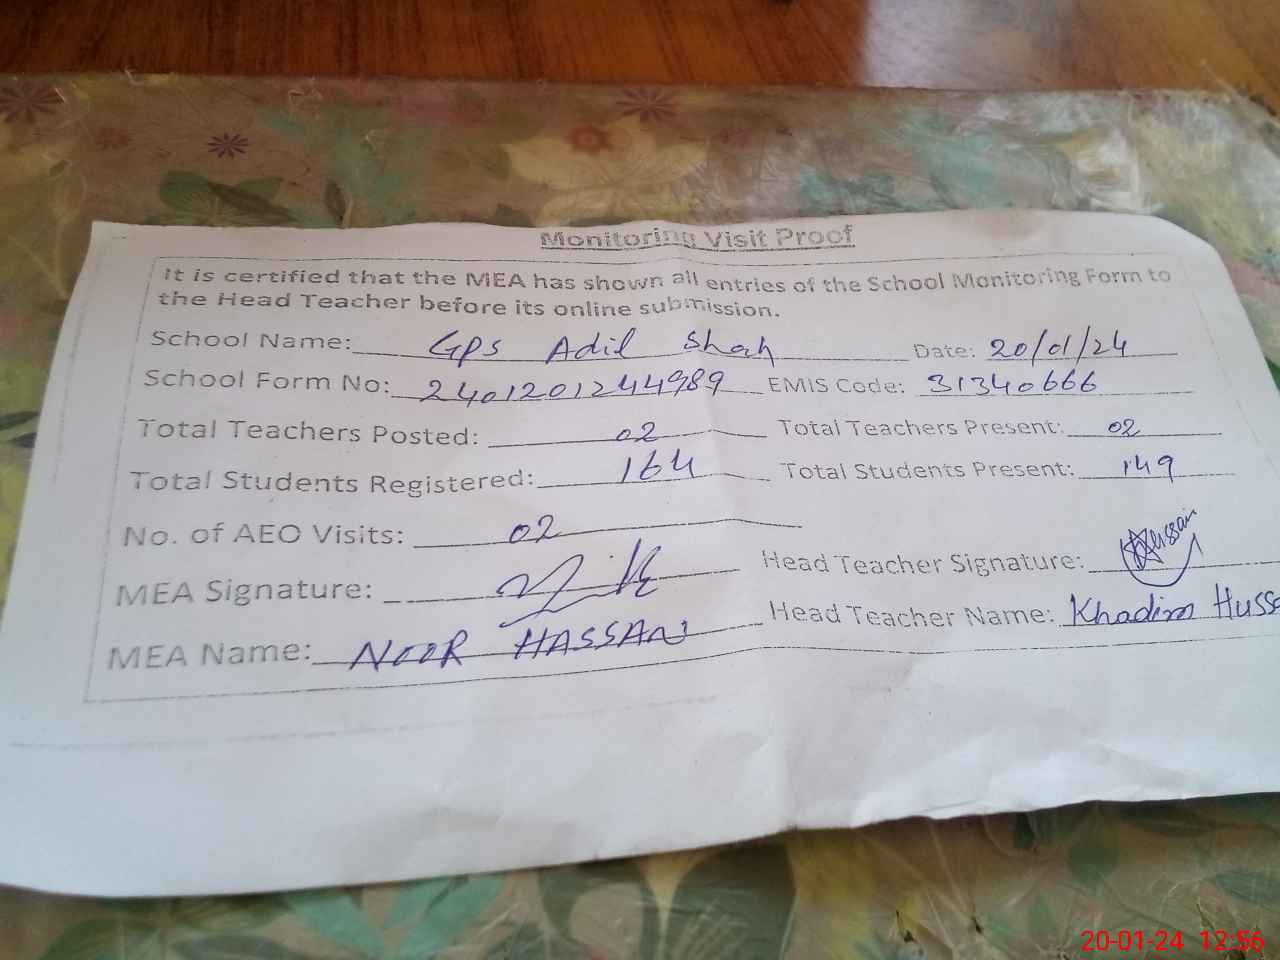 Monitoring Visit Proof
It is certified that the MEA has shown all entries of the School Monitoring Form to
the Head Teacher before its online submission.
School Name: GPS Adil Shah Date: 20/01/24
School Form No: 2401201244989 EMIS Code: 31340666
Total Teachers Posted: 02 Total Teachers Present: 02
Total Students Registered: 164 Total Students Present: 149
No. of AEO Visits: 02
MEA Signature: Head Teacher Signature: Hussain
MEA Name: NOOR HASSAN Head Teacher Name: Khadim Huss
20-01-24 12:56